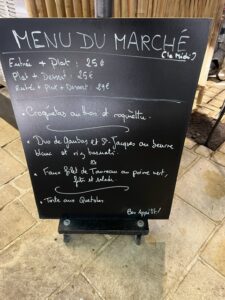 MENU DU MARCHÉ
(le Midi)
Entrée + Plat : 25€
Plat + Dessert : 25€
Entrée + Plat + Dessert : 29€
Croquetas au bois et roquette.
Duo de Gambas et St Jacques au beurre
blanc et riz basmati.
ou
Faux filet de Taureau au poivre vert,
frites et salade.
Tarte aux
Bon Appétit!